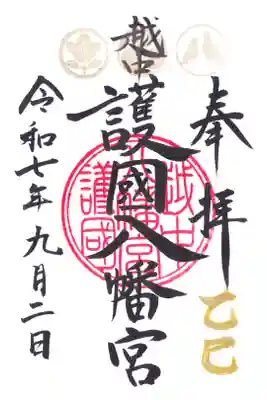 奉拝
乙巳
越中
護國八幡宮
令和七年九月二日
越中
護國